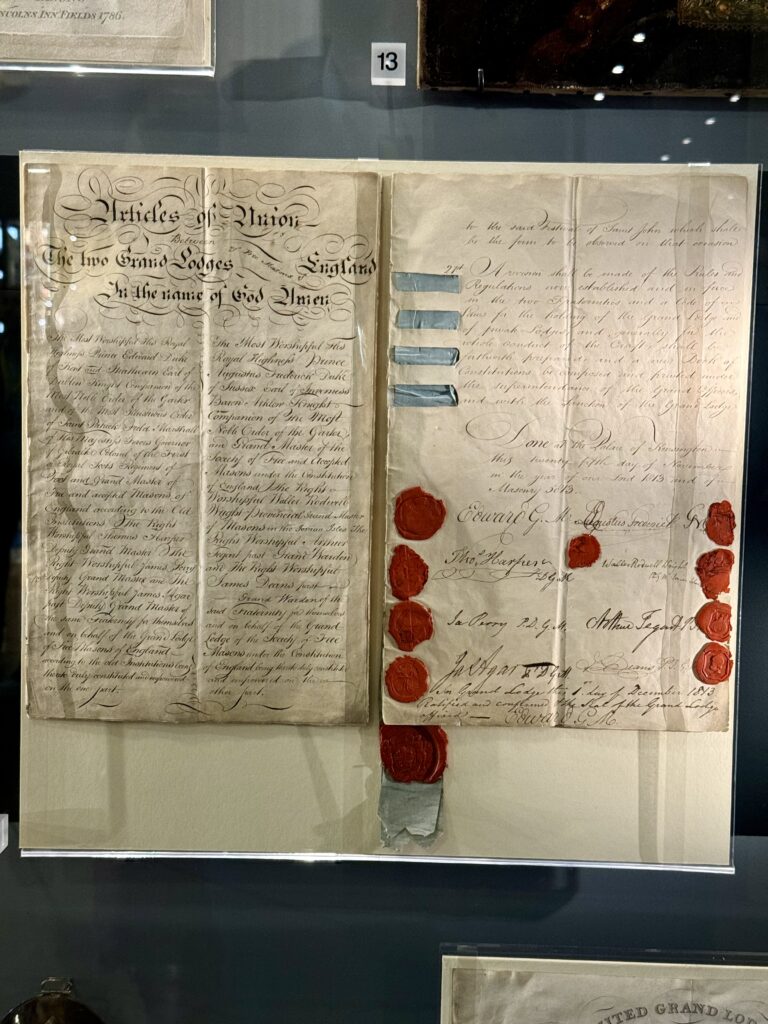 LINCOLNS INN FIELDS 1786.
13
Articles of Union
Between
The two Grand Lodges of Free Masons of England
In the name of God Amen
The Most Worshipful His Royal
Highness Prince Edward Duke
of Kent and Strathearn Earl of
Dublin Knight Companion of the
Most Noble Order of the Garter
and of the Most Illustrious Order
of Saint Patrick Field Marshall
of His Majesty's Forces Governor
of Gibraltar Colonel of the First
or Royal Scots Regiment of
Foot and Grand Master of
Free and accepted Masons of
England according to the Old
Institutions The Right
Worshipful Thomas Harper
Deputy Grand Master The
Right Worshipful James Perry
past Deputy Grand Master and The
Right Worshipful James Agar
past Deputy Grand Master of
the same Fraternity for themselves
and on behalf of the Grand Lodge
of Free Masons of England
according to the old Institutions being
thereto duly constituted and empowered
on the one part
The Most Worshipful His
Royal Highness Prince
Augustus Frederick Duke
of Sussex Earl of Inverness
Baron Arklow Knight
Companion of the Most
Noble Order of the Garter
and Grand Master of the
Society of Free and Accepted
Masons under the Constitution
of England The Right
Worshipful Waller Rodwell
Wright Provincial Grand Master
of Masons in the Ionian Isles The
Right Worshipful Arthur
Tegart past Grand Warden
and The Right Worshipful
James Deans past
Grand Warden of the
said Fraternity for themselves
and on behalf of the Grand
Lodge of the Society of Free
Masons under the Constitution
of England being thereto duly constituted
and empowered on the
other part.
to the said Festival of Saint John which shall
be the form to be observed on that occasion
A revision shall be made of the Rules and
Regulations now established and in force
in the two Fraternities and a code of
laws for the holding of the Grand Lodge and
of private Lodges and generally for the
whole conduct of the Craft shall be
forthwith prepared and a new Book of
Constitutions be composed and printed under
the superintendance of the Grand Officers
and with the sanction of the Grand Lodge
Done at the Palace of Kensington
this twenty fifth day of November
in the year of our Lord 1813 and of
Masonry 5813.
Edward G. M. Augustus Frederick G M
Thos Harper D.G.M. Waller Rodwell Wright
Ja Perry P. D. G. M. Arthur Tegart
Jas Agar P D G M Deans
In Grand Lodge this 1st day of December 1813
Ratified and confirmed & the Seal of the Grand Lodge
affixed — Edward G. M.
UNITED GRAND LOD